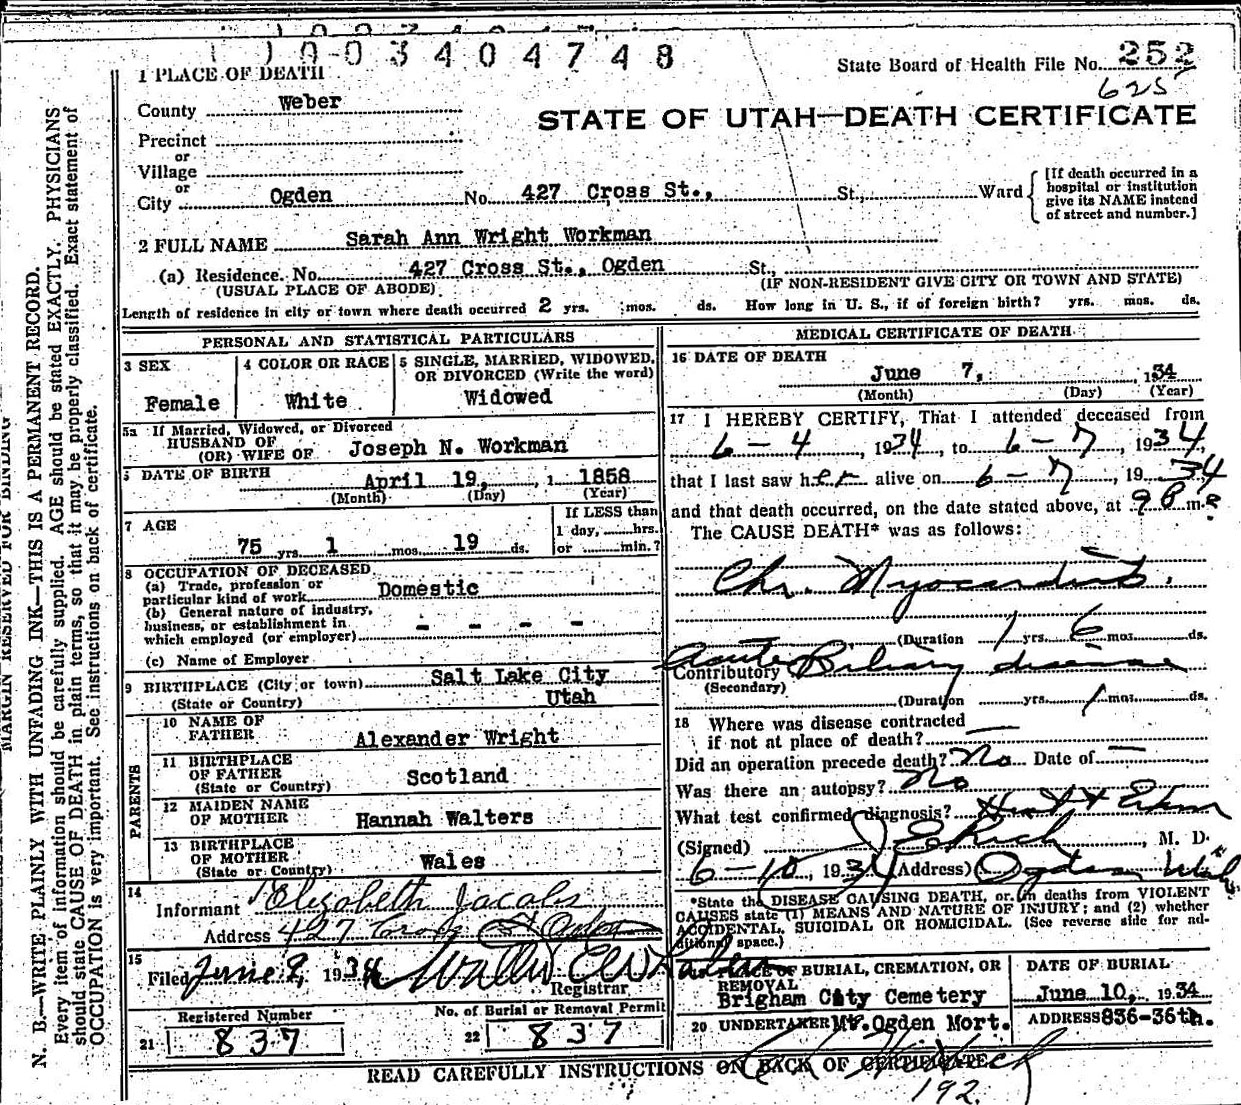 1 0 0 3 4 0 4 7 4 8
State Board of Health File No. 252
625
1 PLACE OF DEATH
County Weber
STATE OF UTAH—DEATH CERTIFICATE
Precinct
or
Village
or
City Ogden No. 427 Cross St., St., Ward
[If death occurred in a hospital or institution give its NAME instead of street and number.]
2 FULL NAME Sarah Ann Wright Workman
(a) Residence. No. 427 Cross St., Ogden St.,
(USUAL PLACE OF ABODE) (IF NON-RESIDENT GIVE CITY OR TOWN AND STATE)
Length of residence in city or town where death occurred 2 yrs. mos. ds. How long in U. S., if of foreign birth? yrs. mos. ds.
PERSONAL AND STATISTICAL PARTICULARS
3 SEX
Female
4 COLOR OR RACE
White
5 SINGLE, MARRIED, WIDOWED,
OR DIVORCED (Write the word)
Widowed
5a If Married, Widowed, or Divorced
HUSBAND OF
(OR) WIFE OF Joseph N. Workman
6 DATE OF BIRTH
April 19, 1 1858
(Month) (Day) (Year)
7 AGE
75 yrs. 1 mos. 19 ds.
If LESS than
1 day, hrs.
or min.?
8 OCCUPATION OF DECEASED
(a) Trade, profession or
particular kind of work Domestic
(b) General nature of industry,
business, or establishment in
which employed (or employer) - - - -
(c) Name of Employer
9 BIRTHPLACE (City or town) Salt Lake City
(State or Country) Utah
PARENTS
10 NAME OF
FATHER Alexander Wright
11 BIRTHPLACE
OF FATHER Scotland
(State or Country)
12 MAIDEN NAME
OF MOTHER Hannah Walters
13 BIRTHPLACE
OF MOTHER Wales
(State or Country)
14
Informant Elizabeth Jacobs
Address 427 Cross St Ogden
15
Filed June 9, 1934
Registrar
Registered Number
21 837
No. of Burial or Removal Permit
22 837
MEDICAL CERTIFICATE OF DEATH
16 DATE OF DEATH
June 7, 1934
(Month) (Day) (Year)
17 I HEREBY CERTIFY, That I attended deceased from
6-4, 1934, to 6-7, 1934,
that I last saw her alive on 6-7, 1934
and that death occurred, on the date stated above, at 9 P m.
The CAUSE DEATH* was as follows:
Chr. Myocarditis.
(Duration 1 yrs. 6 mos. ds.
Acute Biliary disease
Contributory
(Secondary)
(Duration yrs. 1 mos. ds.
18 Where was disease contracted
if not at place of death? —
Did an operation precede death? No Date of —
Was there an autopsy? No
What test confirmed diagnosis? Heart &
(Signed) J E Rich, M. D.
6-10, 1934 (Address) Ogden Utah
*State the DISEASE CAUSING DEATH, or in deaths from VIOLENT
CAUSES state (1) MEANS AND NATURE OF INJURY; and (2) whether
ACCIDENTAL, SUICIDAL OR HOMICIDAL. (See reverse side for ad-
ditional space.)
19 PLACE OF BURIAL, CREMATION, OR
REMOVAL
Brigham City Cemetery
DATE OF BURIAL
June 10, 1934
20 UNDERTAKER Mt. Ogden Mort.
ADDRESS 836-36th.
READ CAREFULLY INSTRUCTIONS ON BACK OF CERTIFICATE
192.
MARGIN RESERVED FOR BINDING
N. B.—WRITE PLAINLY WITH UNFADING INK—THIS IS A PERMANENT RECORD.
Every item of information should be carefully supplied. AGE should be stated EXACTLY. PHYSICIANS
should state CAUSE OF DEATH in plain terms, so that it may be properly classified. Exact statement of
OCCUPATION is very important. See instructions on back of certificate.